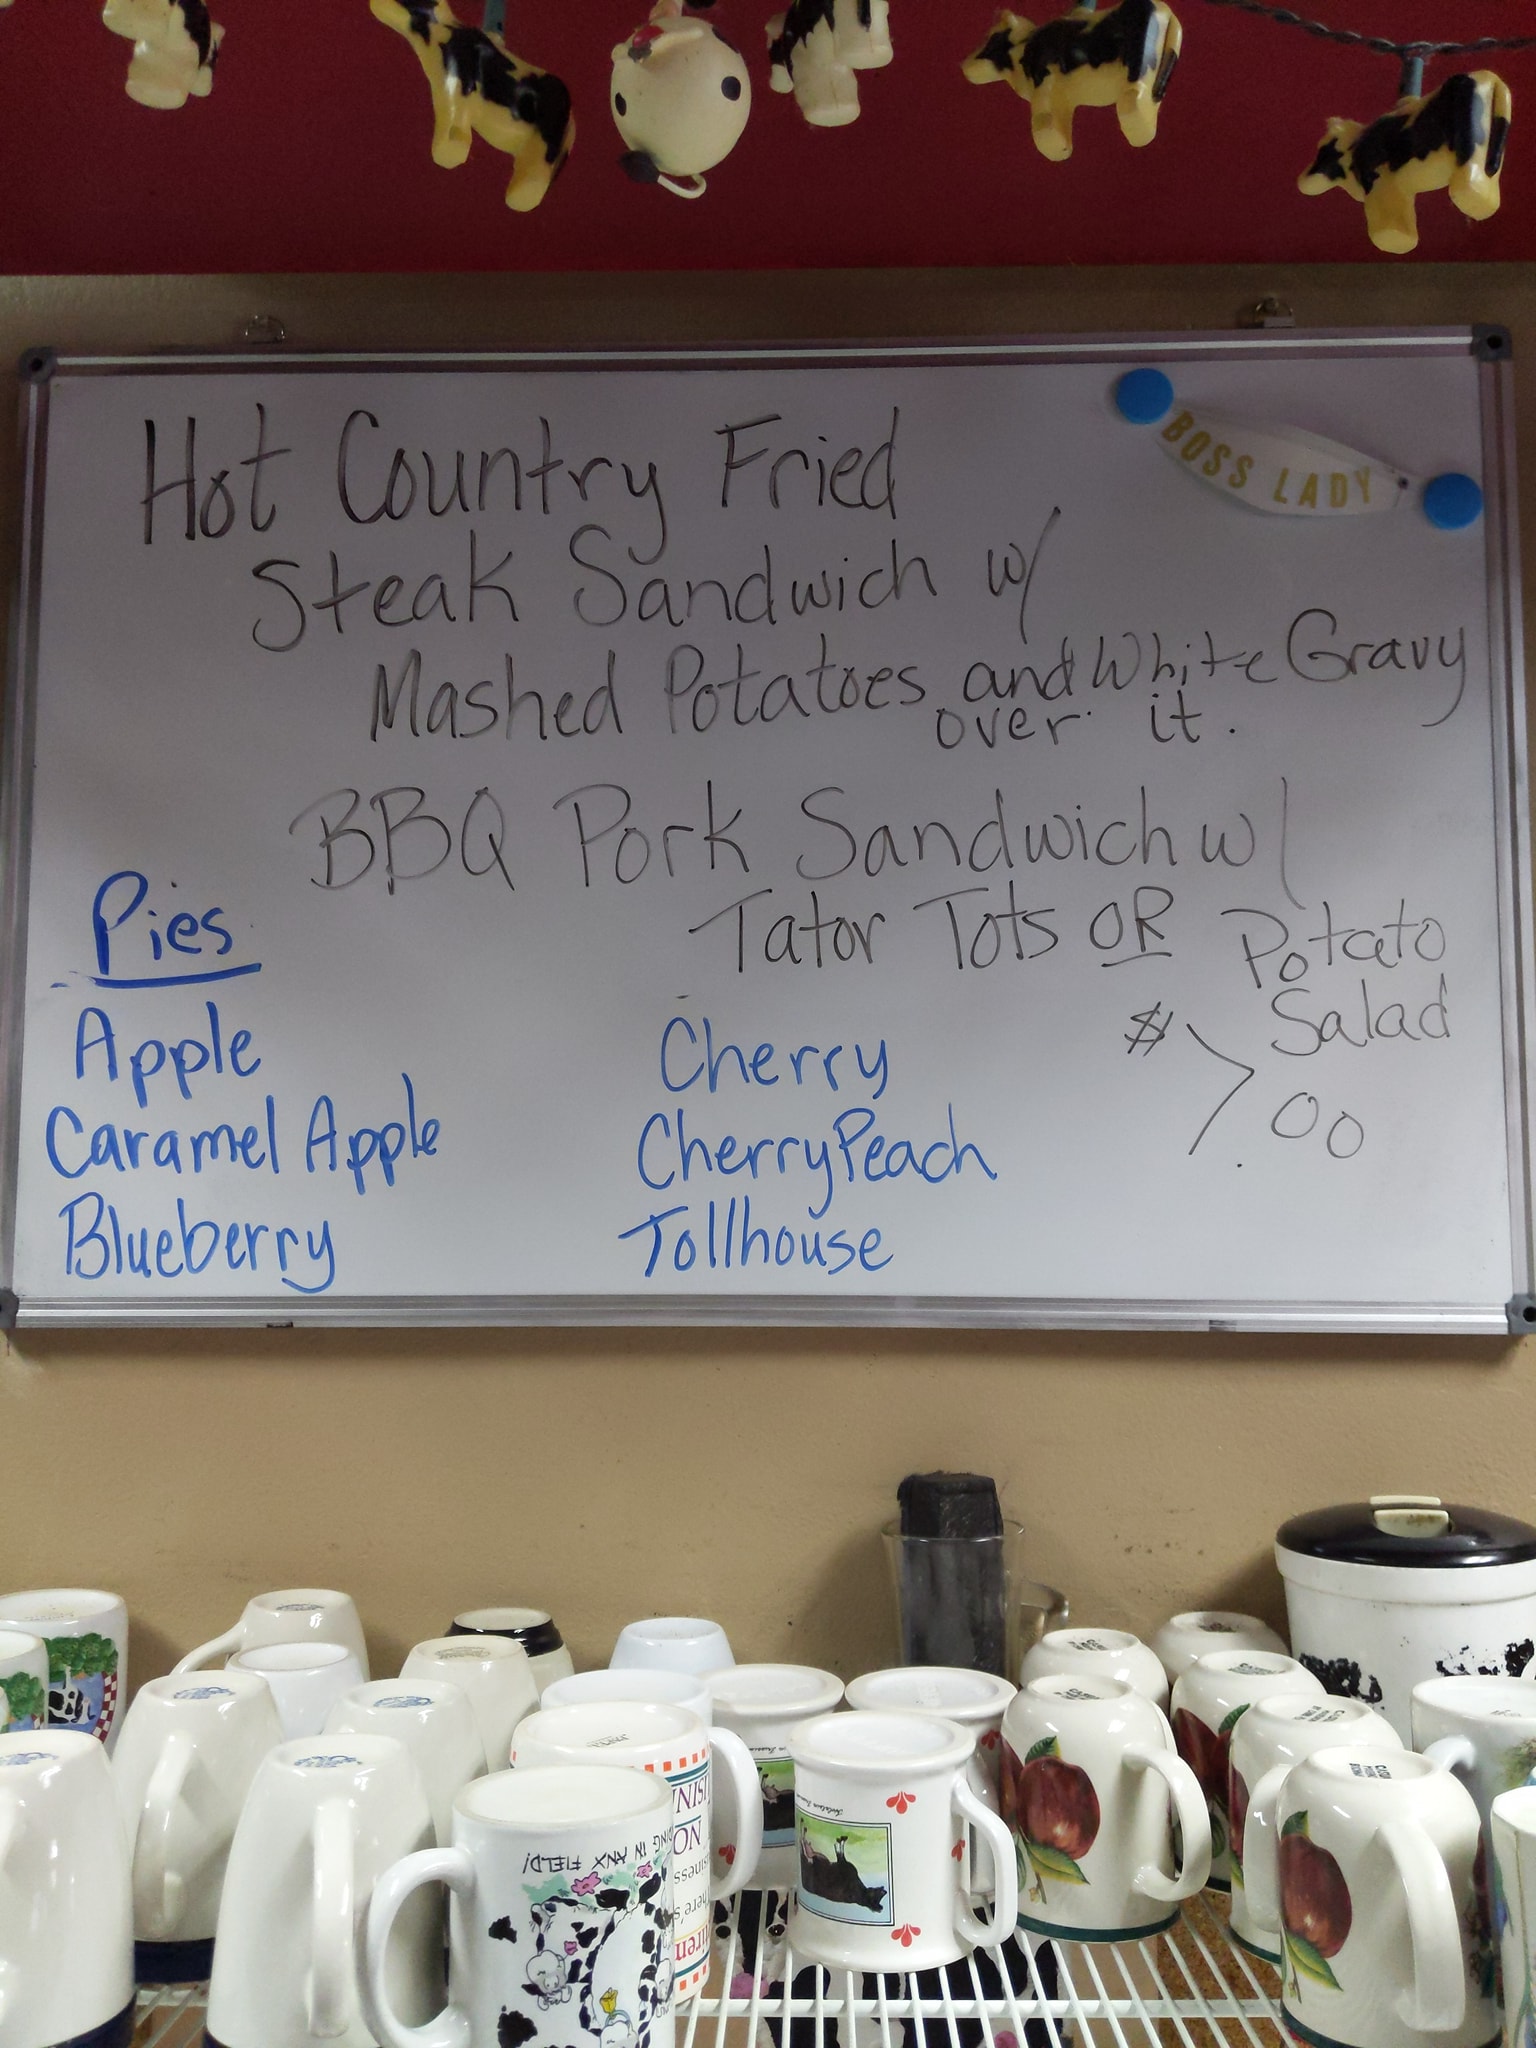 BOSS LADY
Hot Country Fried
Steak Sandwich w/
Mashed Potatoes and White Gravy
over it.
BBQ Pork Sandwich w/
Tator Tots OR Potato
Salad
$7.00
Pies
Apple
Caramel Apple
Blueberry
Cherry
Cherry Peach
Tollhouse
IN ANX FIELD!
NO